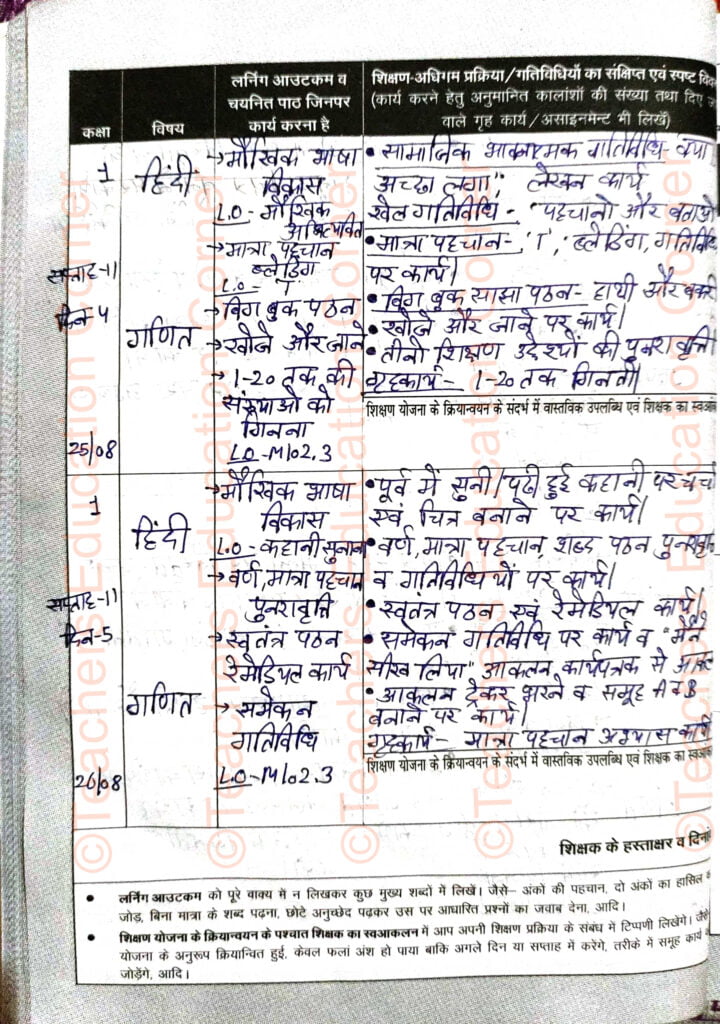 कक्षा
विषय
लर्निंग आउटकम व
चयनित पाठ जिनपर
कार्य करना है
शिक्षण-अधिगम प्रक्रिया/गतिविधियों का संक्षिप्त एवं स्पष्ट
(कार्य करने हेतु अनुमानित कालांशों की संख्या तथा दिए
वाले गृह कार्य/असाइनमेंट भी लिखें)
1
सप्ताह-11
दिन-4
25/08
हिंदी
गणित
→मौखिक भाषा
विकास
L.O-मौखिक
अभिव्यक्ति
→मात्रा पहचान
ब्लेडिंग
L.O- 'ा'
→बिग बुक पठन
→खोजे और जाने
→1-20 तक की
संख्याओं को
गिनना
LO-M102.3
• सामाजिक भावात्मक गतिविधि- क्या
अच्छा लगा", लेखन कार्य
खेल गतिविधि- "पहचानो और बताओ
• मात्रा पहचान- 'ा', ब्लेडिंग, गतिविधि
पर कार्य।
• बिग बुक साझा पठन- हाथी और बकरी
• खोजे और जाने पर कार्य।
• तीनो शिक्षण उद्देश्यों की पुनरावृत्ति
गृहकार्य- 1-20 तक गिनती।
शिक्षण योजना के क्रियान्वयन के संदर्भ में वास्तविक उपलब्धि एवं शिक्षक का
1
सप्ताह-11
दिन-5
26/08
हिंदी
गणित
→मौखिक भाषा
विकास
L.O-कहानी सुनाना
→वर्ण, मात्रा पहचान
पुनरावृत्ति
→स्वतंत्र पठन
रेमेडियल कार्य
→समेकन
गतिविधि
LO-M102.3
• पूर्व में सुनी/पढ़ी हुई कहानी पर चर्चा
एवं चित्र बनाने पर कार्य।
• वर्ण, मात्रा पहचान, शब्द पठन
व गतिविधियों पर कार्य।
• स्वतंत्र पठन एवं रेमेडियल कार्य।
• समेकन गतिविधि पर कार्य व "मैने
सीख लिया" आकलन कार्यपत्रक से
• आकलन ट्रेकर भरने व समूह A व B
बनाने पर कार्य।
गृहकार्य- मात्रा पहचान अभ्यास कार्य
शिक्षण योजना के क्रियान्वयन के संदर्भ में वास्तविक उपलब्धि एवं शिक्षक का
शिक्षक के हस्ताक्षर व
• लर्निंग आउटकम को पूरे वाक्य में न लिखकर कुछ मुख्य शब्दों में लिखें। जैसे– अंकों की पहचान, दो अंकों का हासिल
जोड़, बिना मात्रा के शब्द पढ़ना, छोटे अनुच्छेद पढ़कर उस पर आधारित प्रश्नों का जवाब देना, आदि।
• शिक्षण योजना के क्रियान्वयन के पश्चात शिक्षक का स्वआकलन में आप अपनी शिक्षण प्रक्रिया के संबंध में टिप्पणी लिखेंगे।
योजना के अनुरूप क्रियान्वित हुई, केवल फलां अंश हो पाया बाकि अगले दिन या सप्ताह में करेंगे, तरीके में समूह कार्य
जोड़ेंगे, आदि।
©Teachers Education Corner
©Teachers Education Corner
©Teachers Education Corner
©Teachers Education Corner
©Teachers Education Corner
©Teachers Education Corner